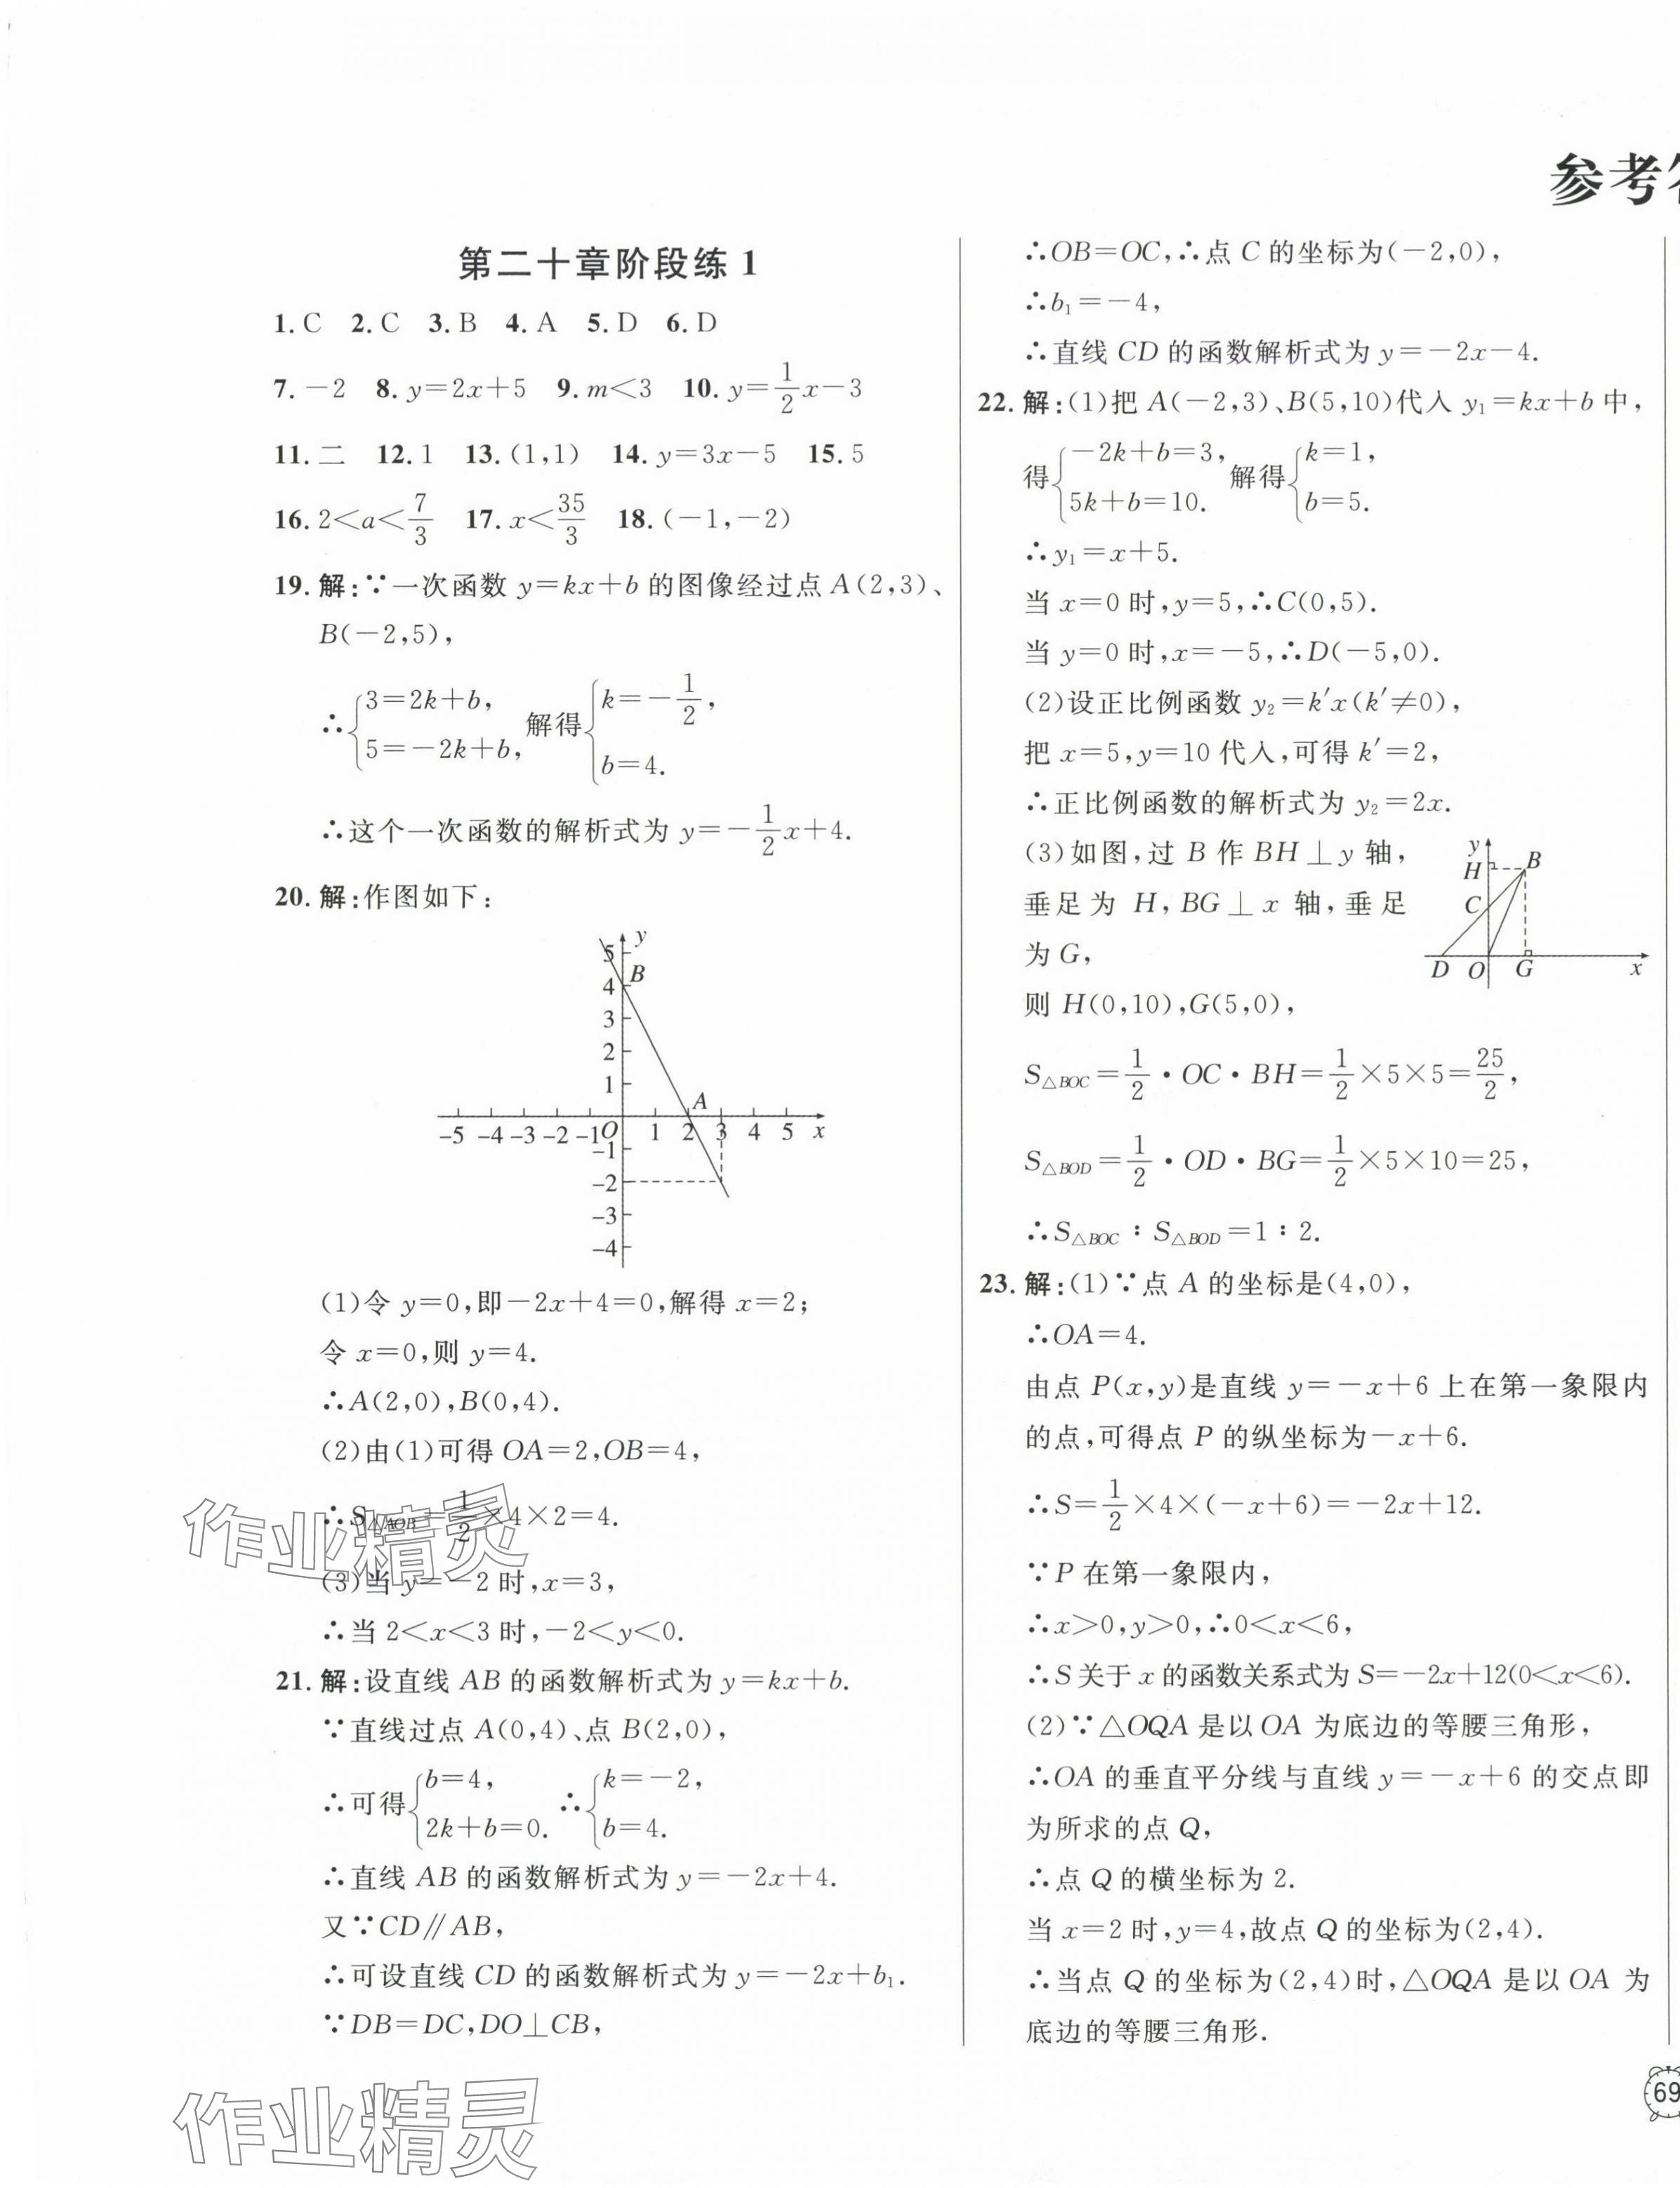 参考
第二十章阶段练1
1.C 2.C 3.B 4.A 5.D 6.D
7.-2 8.y=2x+5 9.m<3 10.y=1/2x-3
11.二 12.1 13.(1,1) 14.y=3x-5 15.5
16.2<a<7/3 17.x<35/3 18.(-1,-2)
19.解:∵一次函数y=kx+b的图像经过点A(2,3)、
B(-2,5),
∴{3=2k+b, 5=-2k+b, 解得{k=-1/2, b=4.
∴这个一次函数的解析式为y=-1/2x+4.
20.解:作图如下:
y
5
B
4
3
2
1
A
-5 -4 -3 -2 -1 O 1 2 3 4 5 x
-1
-2
-3
-4
(1)令y=0,即-2x+4=0,解得x=2;
令x=0,则y=4.
∴A(2,0),B(0,4).
(2)由(1)可得OA=2,OB=4,
∴S△AOB=1/2×4×2=4.
(3)当y=-2时,x=3,
∴当2<x<3时,-2<y<0.
21.解:设直线AB的函数解析式为y=kx+b.
∵直线过点A(0,4)、点B(2,0),
∴可得{b=4, 2k+b=0. ∴{k=-2, b=4.
∴直线AB的函数解析式为y=-2x+4.
又∵CD∥AB,
∴可设直线CD的函数解析式为y=-2x+b₁.
∵DB=DC,DO⊥CB,
∴OB=OC,∴点C的坐标为(-2,0),
∴b₁=-4,
∴直线CD的函数解析式为y=-2x-4.
22.解:(1)把A(-2,3)、B(5,10)代入y₁=kx+b中,
得{-2k+b=3, 5k+b=10. 解得{k=1, b=5.
∴y₁=x+5.
当x=0时,y=5,∴C(0,5).
当y=0时,x=-5,∴D(-5,0).
(2)设正比例函数y₂=k′x(k′≠0),
把x=5,y=10代入,可得k′=2,
∴正比例函数的解析式为y₂=2x.
(3)如图,过B作BH⊥y轴,
垂足为H,BG⊥x轴,垂足
为G,
y
H B
C
D O G x
则H(0,10),G(5,0),
S△BOC=1/2·OC·BH=1/2×5×5=25/2,
S△BOD=1/2·OD·BG=1/2×5×10=25,
∴S△BOC:S△BOD=1:2.
23.解:(1)∵点A的坐标是(4,0),
∴OA=4.
由点P(x,y)是直线y=-x+6上在第一象限内
的点,可得点P的纵坐标为-x+6.
∴S=1/2×4×(-x+6)=-2x+12.
∵P在第一象限内,
∴x>0,y>0,∴0<x<6,
∴S关于x的函数关系式为S=-2x+12(0<x<6).
(2)∵△OQA是以OA为底边的等腰三角形,
∴OA的垂直平分线与直线y=-x+6的交点即
为所求的点Q,
∴点Q的横坐标为2.
当x=2时,y=4,故点Q的坐标为(2,4).
∴当点Q的坐标为(2,4)时,△OQA是以OA为
底边的等腰三角形.
69
作业精灵
作业精灵